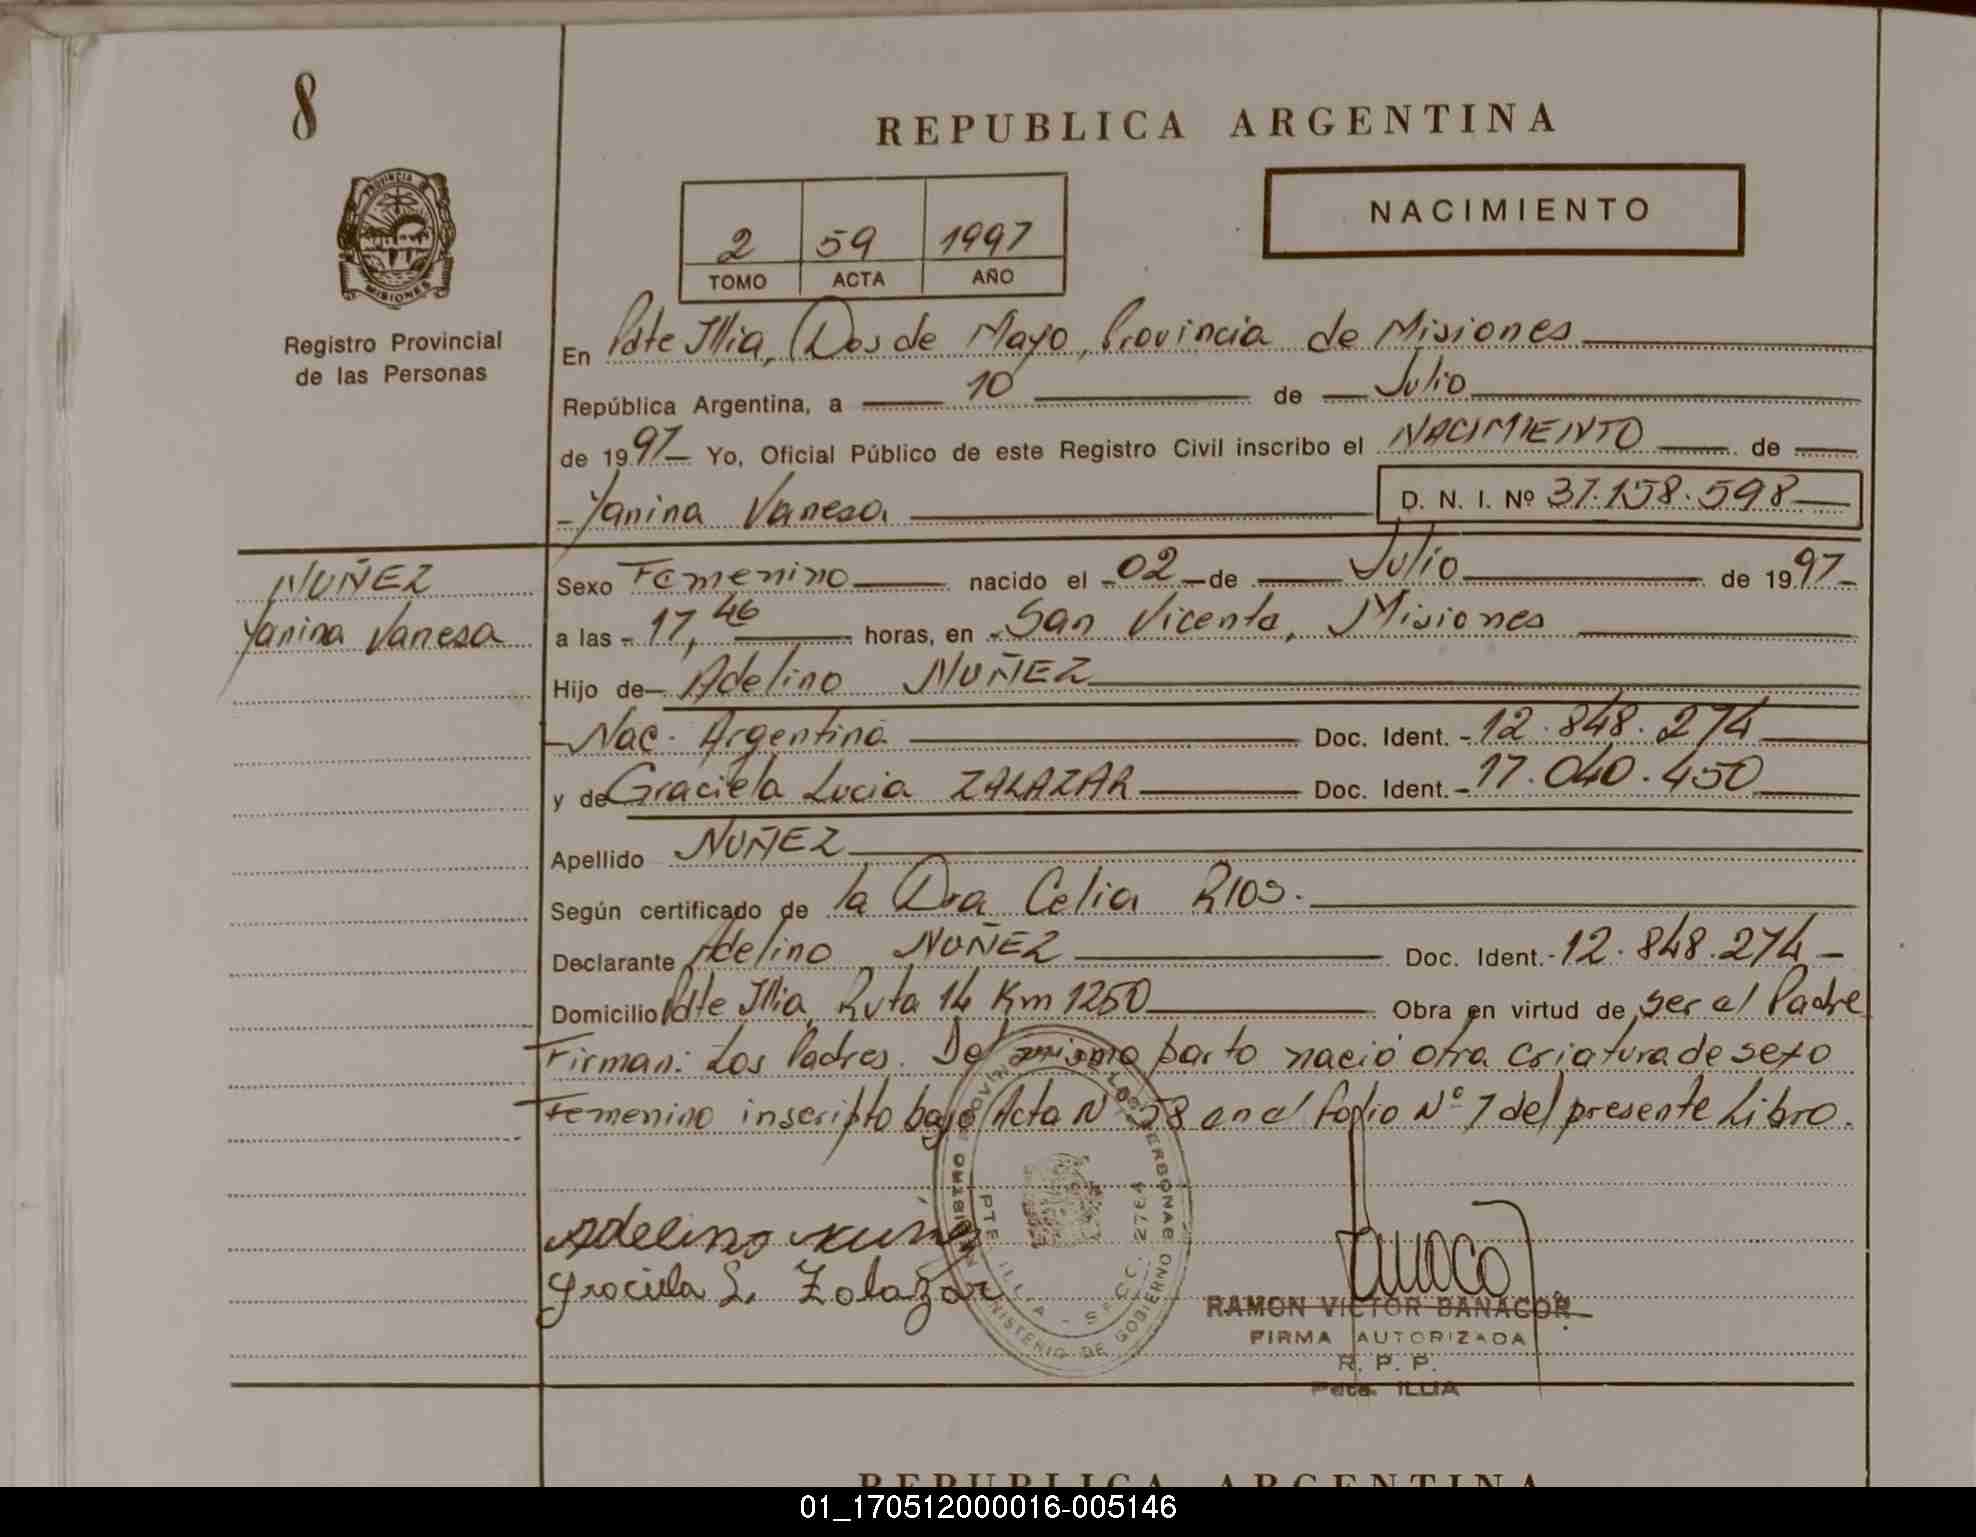 8
REPUBLICA ARGENTINA
PROVINCIA
MISIONES
NACIMIENTO
2 59 1997
TOMO ACTA AÑO
Registro Provincial
de las Personas
En Pdte Illia, Dos de Mayo, Provincia de Misiones
República Argentina, a 10 de Julio
de 1997 Yo, Oficial Público de este Registro Civil inscribo el NACIMIENTO de
Yanina Vanesa
D. N. I. Nº 37.158.598
NUÑEZ
Yanina Vanesa
Sexo Femenino nacido el 02 de Julio de 1997
a las 17,46 horas, en San Vicente, Misiones
Hijo de Adelino NUÑEZ
Nac. Argentina Doc. Ident. 12.848.274
y de Graciela Lucia ZALAZAR Doc. Ident. 17.040.450
Apellido NUÑEZ
Según certificado de la Dra Celia RIOS.
Declarante Adelino NUÑEZ Doc. Ident. 12.848.274
Domicilio Pdte Illia, Ruta 14 Km 1250 Obra en virtud de ser el Padre
Firman: Los Padres. Del mismo parto nació otra criatura de sexo
Femenino inscripto bajo Acta Nº 58 en el folio Nº 7 del presente Libro.
PTE ILLIA - SECC. 27EA
MINISTERIO DE GOBIERNO
Adelino Nuñez
Graciela L. Zalazar
RAMON VICTOR BANACOR
FIRMA AUTORIZADA
R. P. P.
Pdte. ILLIA
REPUBLICA ARGENTINA
01_170512000016-005146